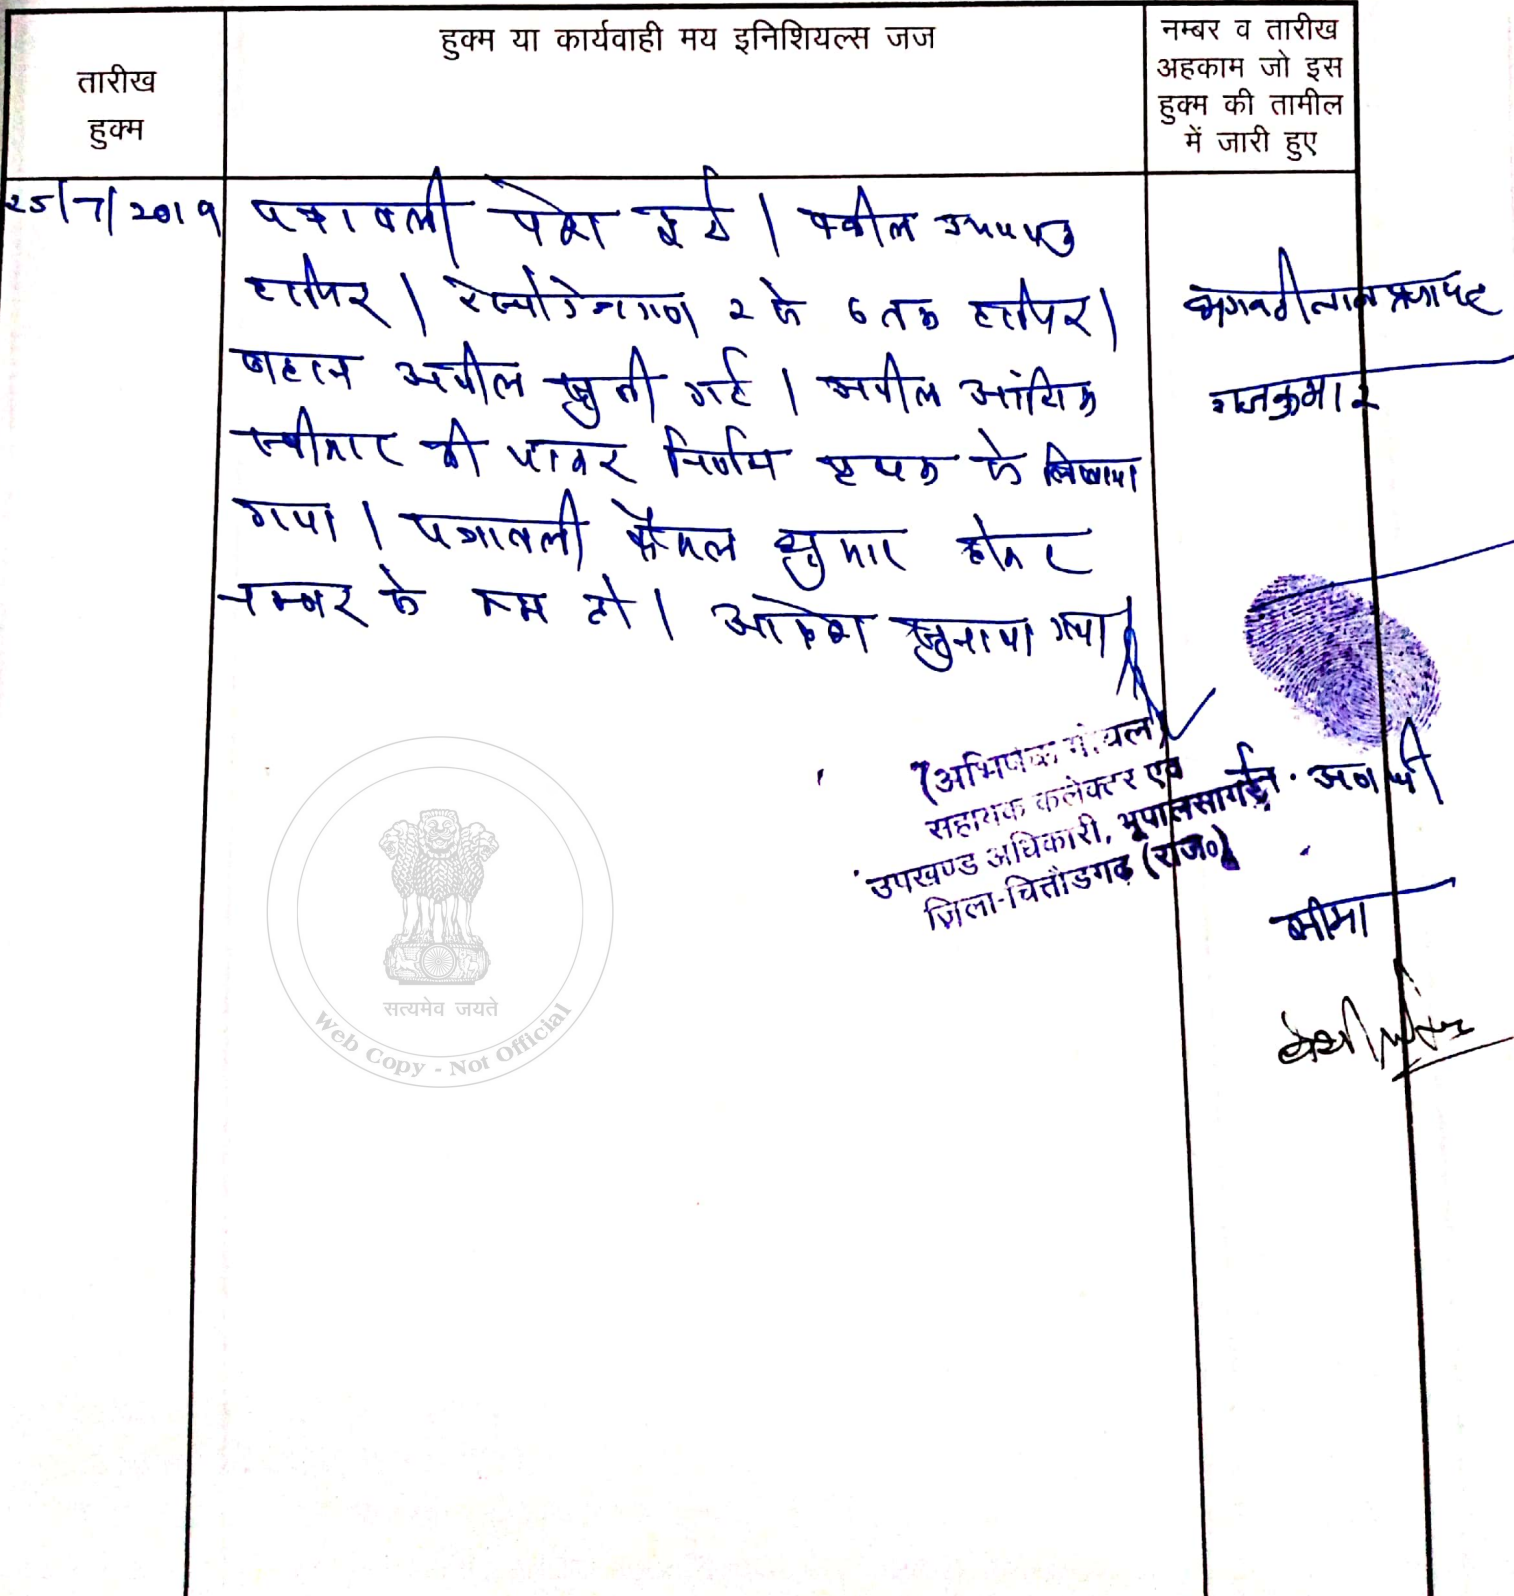 तारीख
हुक्म
हुक्म या कार्यवाही मय इनिशियल्स जज
नम्बर व तारीख
अहकाम जो इस
हुक्म की तामील
में जारी हुए
25/7/2019
पत्रावली पेश हुई। वकील उभयपक्ष
हाजिर। रेस्पोडेन्टगण 2 से 6 तक हाजिर।
बहस अपील सुनी गई। अपील आंशिक
स्वीकार की जाकर निर्णय पृथक से लिखाया
गया। पत्रावली फैसल शुमार होकर
नम्बर से कम हो। आदेश सुनाया गया।
(अभिषेक गोयल)
सहायक कलेक्टर एवं
उपखण्ड अधिकारी, भूपालसागर
जिला-चित्तौडगढ़ (राज०)
भगवतीलाल
राजकुमार
सीमा
सत्यमेव जयते
Web Copy - Not Official